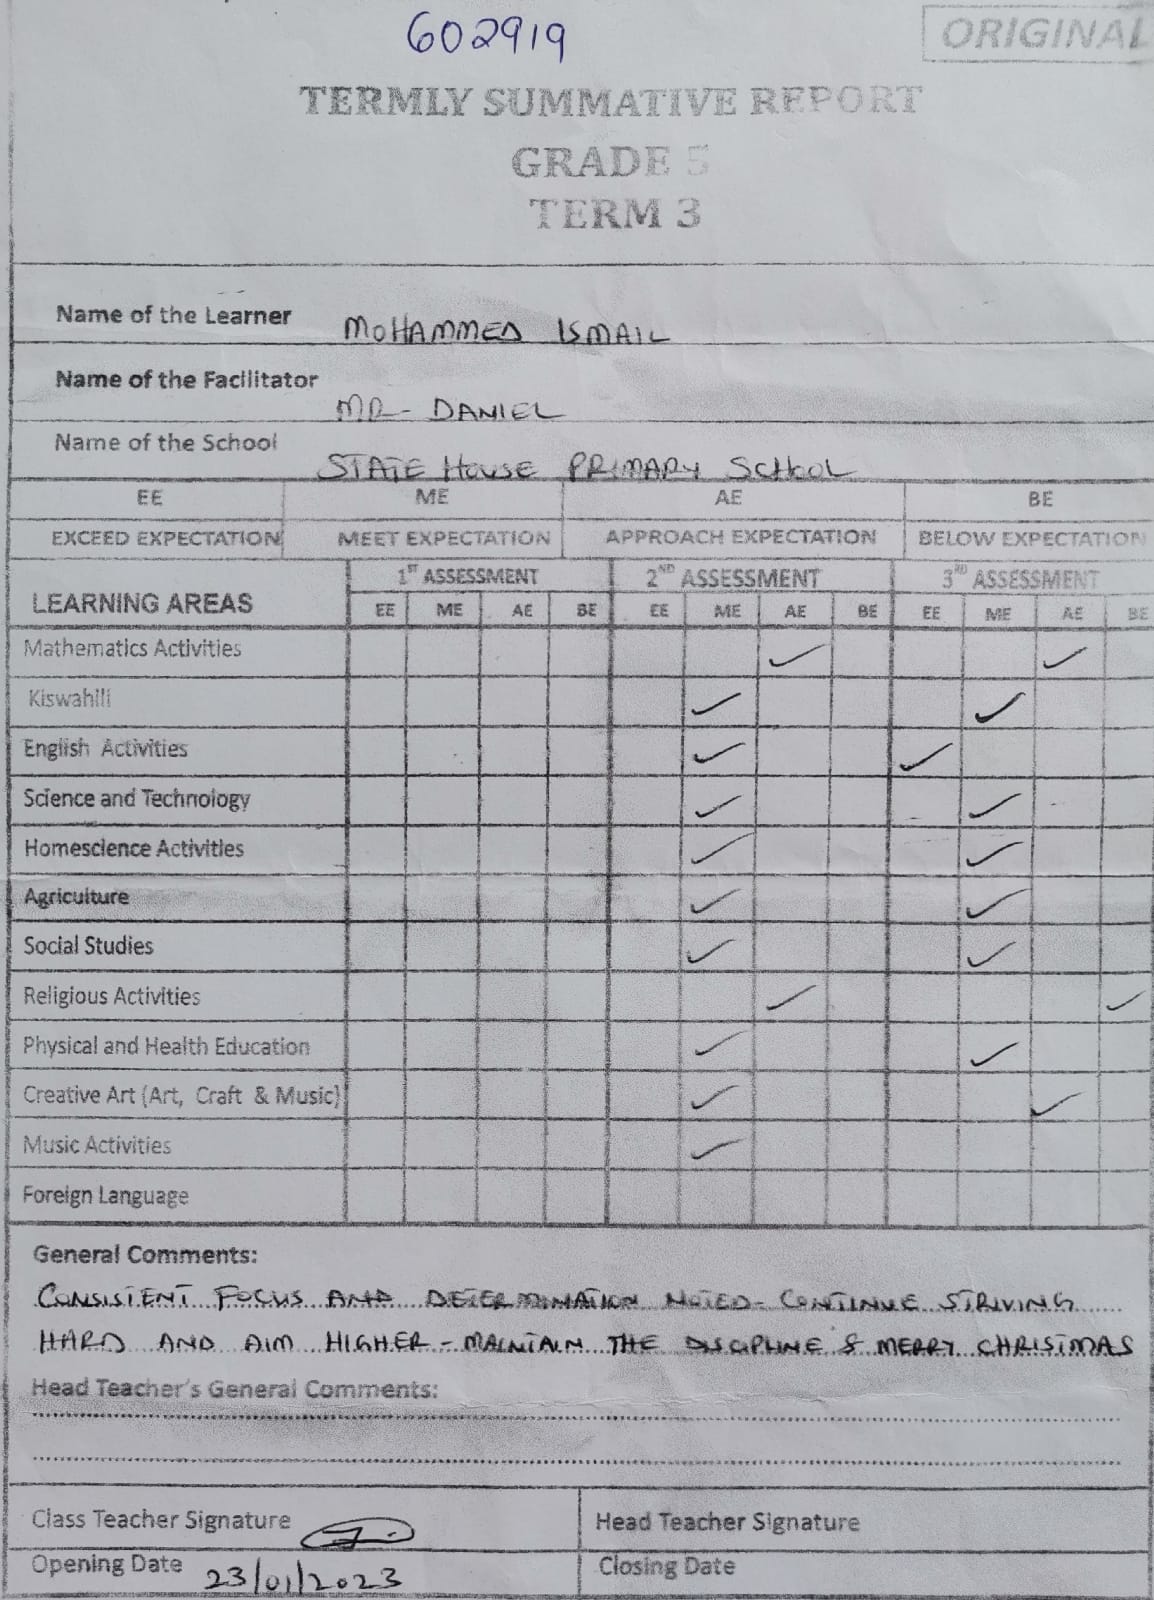 602919
ORIGINAL
TERMLY SUMMATIVE REPORT
GRADE 5
TERM 3
Name of the Learner MOHAMMED ISMAIL
Name of the Facilitator MR- DANIEL
Name of the School STATE HOUSE PRIMARY SCHOOL
EE ME AE BE
EXCEED EXPECTATION MEET EXPECTATION APPROACH EXPECTATION BELOW EXPECTATION
LEARNING AREAS 1ST ASSESSMENT 2ND ASSESSMENT 3RD ASSESSMENT
EE ME AE BE EE ME AE BE EE ME AE BE
Mathematics Activities ✓ ✓
Kiswahili ✓ ✓
English Activities ✓ ✓
Science and Technology ✓ ✓
Homescience Activities ✓ ✓
Agriculture ✓ ✓
Social Studies ✓ ✓
Religious Activities ✓ ✓
Physical and Health Education ✓ ✓
Creative Art (Art, Craft & Music) ✓ ✓
Music Activities ✓
Foreign Language
General Comments:
CONSISTENT FOCUS AND DETERMINATION NOTED- CONTINUE STRIVING
HARD AND AIM HIGHER - MAINTAIN THE DISCIPLINE & MERRY CHRISTMAS
Head Teacher's General Comments:
Class Teacher Signature Head Teacher Signature
Opening Date 23/01/2023 Closing Date